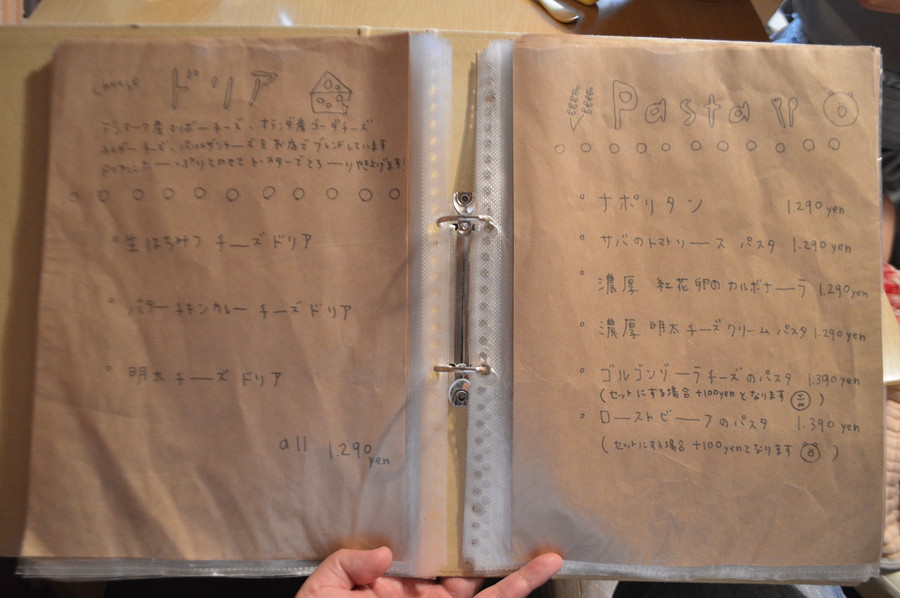 cheese ドリア
デンマーク産マリボーチーズ、オランダ産ゴーダチーズ
チェダーチーズ、パルメザンチーズをお店でブレンドしています
たーーっぷりとのせて トースターでとろーーり やき上げます!
生はちみつ チーズドリア
バターチキンカレー チーズ ドリア
明太チーズ ドリア
all 1.290 yen
Pasta
ナポリタン 1.290 yen
サバのトマトソース パスタ 1.290 yen
濃厚 紅花卵のカルボナーラ 1.290 yen
濃厚 明太チーズクリームパスタ 1.290 yen
ゴルゴンゾーラチーズのパスタ 1.390 yen
(セットにする場合 +100yenとなります )
ローストビーフのパスタ 1.390 yen
(セットにする場合 +100yenとなります )